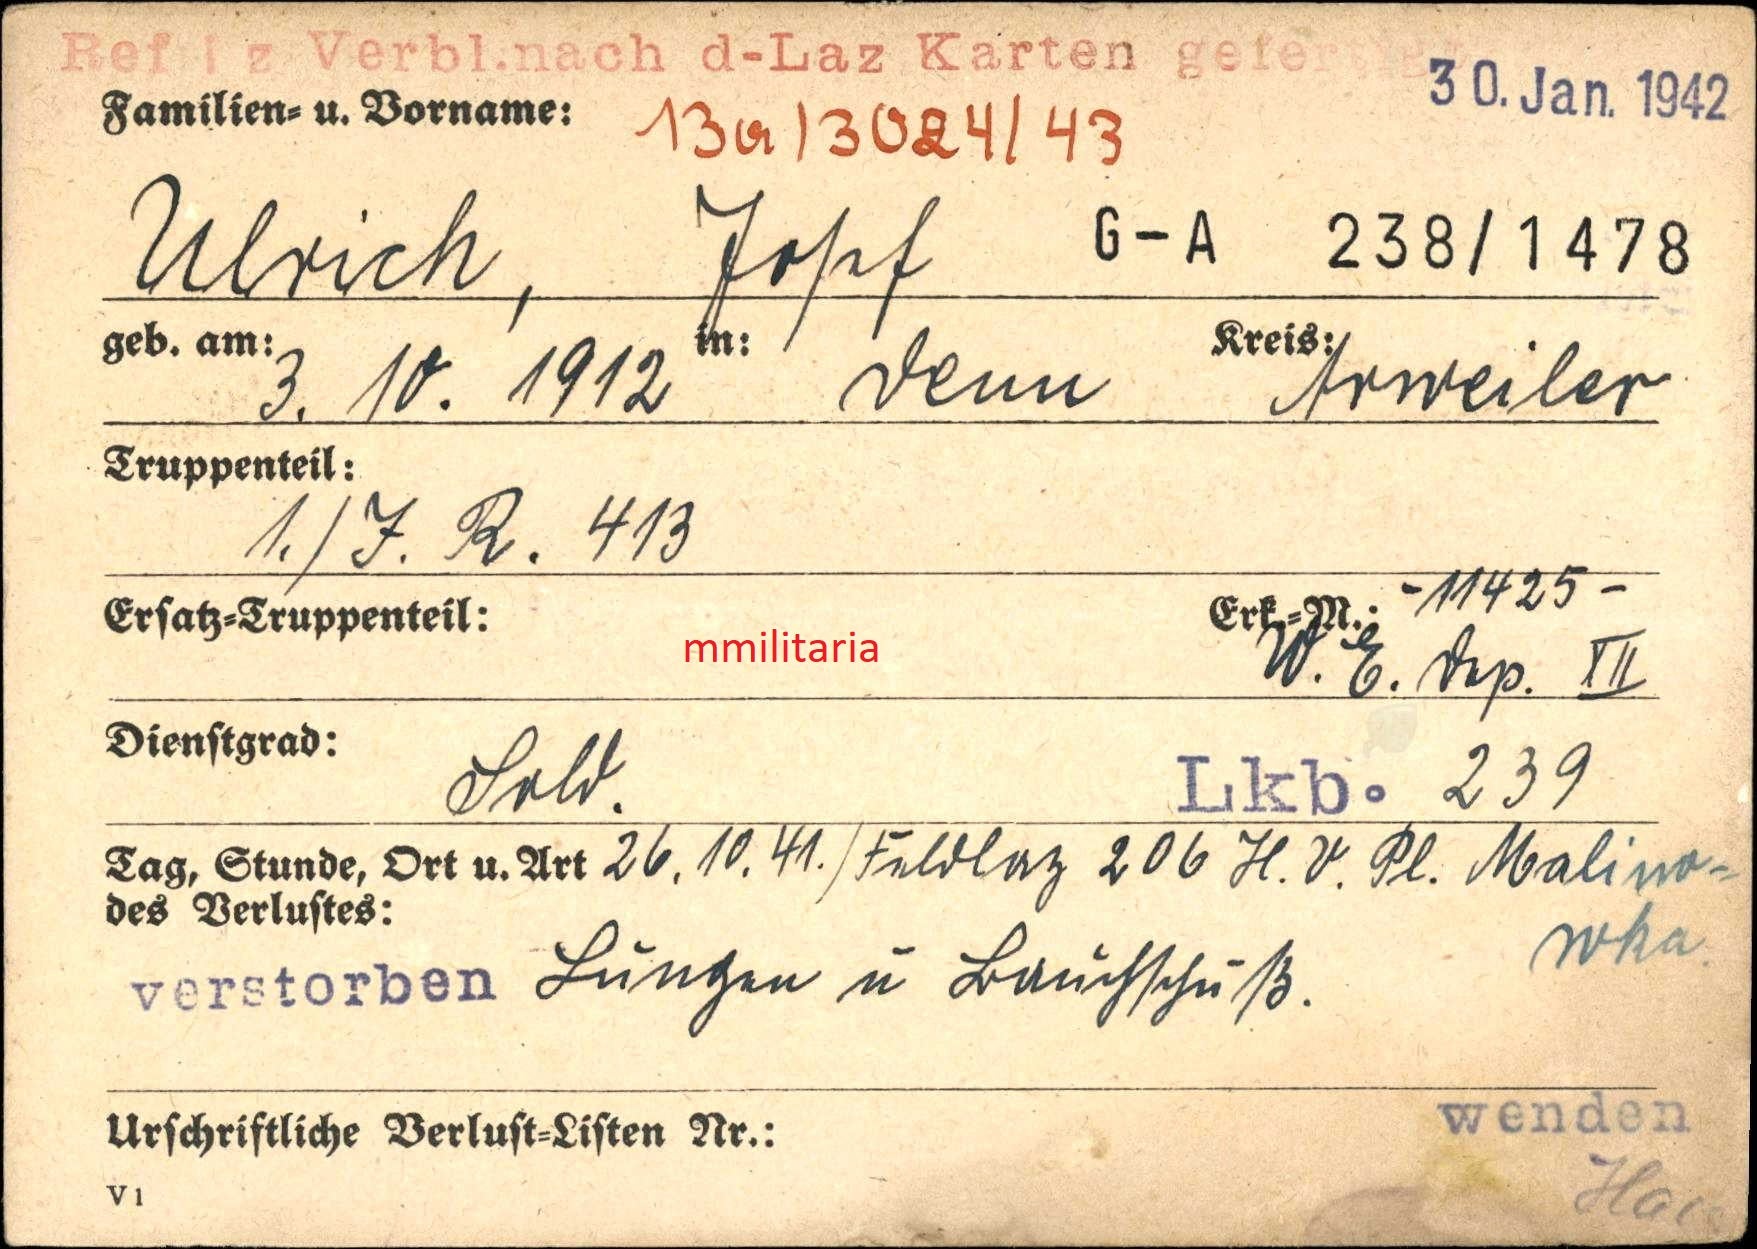 Ref z Verbl.nach d-Laz Karten gefertigt
30. Jan. 1942
Familien- u. Vorname:
13a/3024/43
Ulrich, Josef G-A 238/1478
geb. am: 3. 10. 1912 in: Denn Kreis: Arweiler
Truppenteil:
1./J. R. 413
Ersatz-Truppenteil: Erk.-M.: -11425-
mmilitaria
W. E. Dep. XII
Dienstgrad: Sold. Lkb. 239
Tag, Stunde, Ort u. Art 26. 10. 41. / Feldlaz 206 H. V. Pl. Malino-
des Verlustes: wka.
verstorben Lungen u Bauchschuß.
Urschriftliche Verlust-Listen Nr.:
wenden
V 1